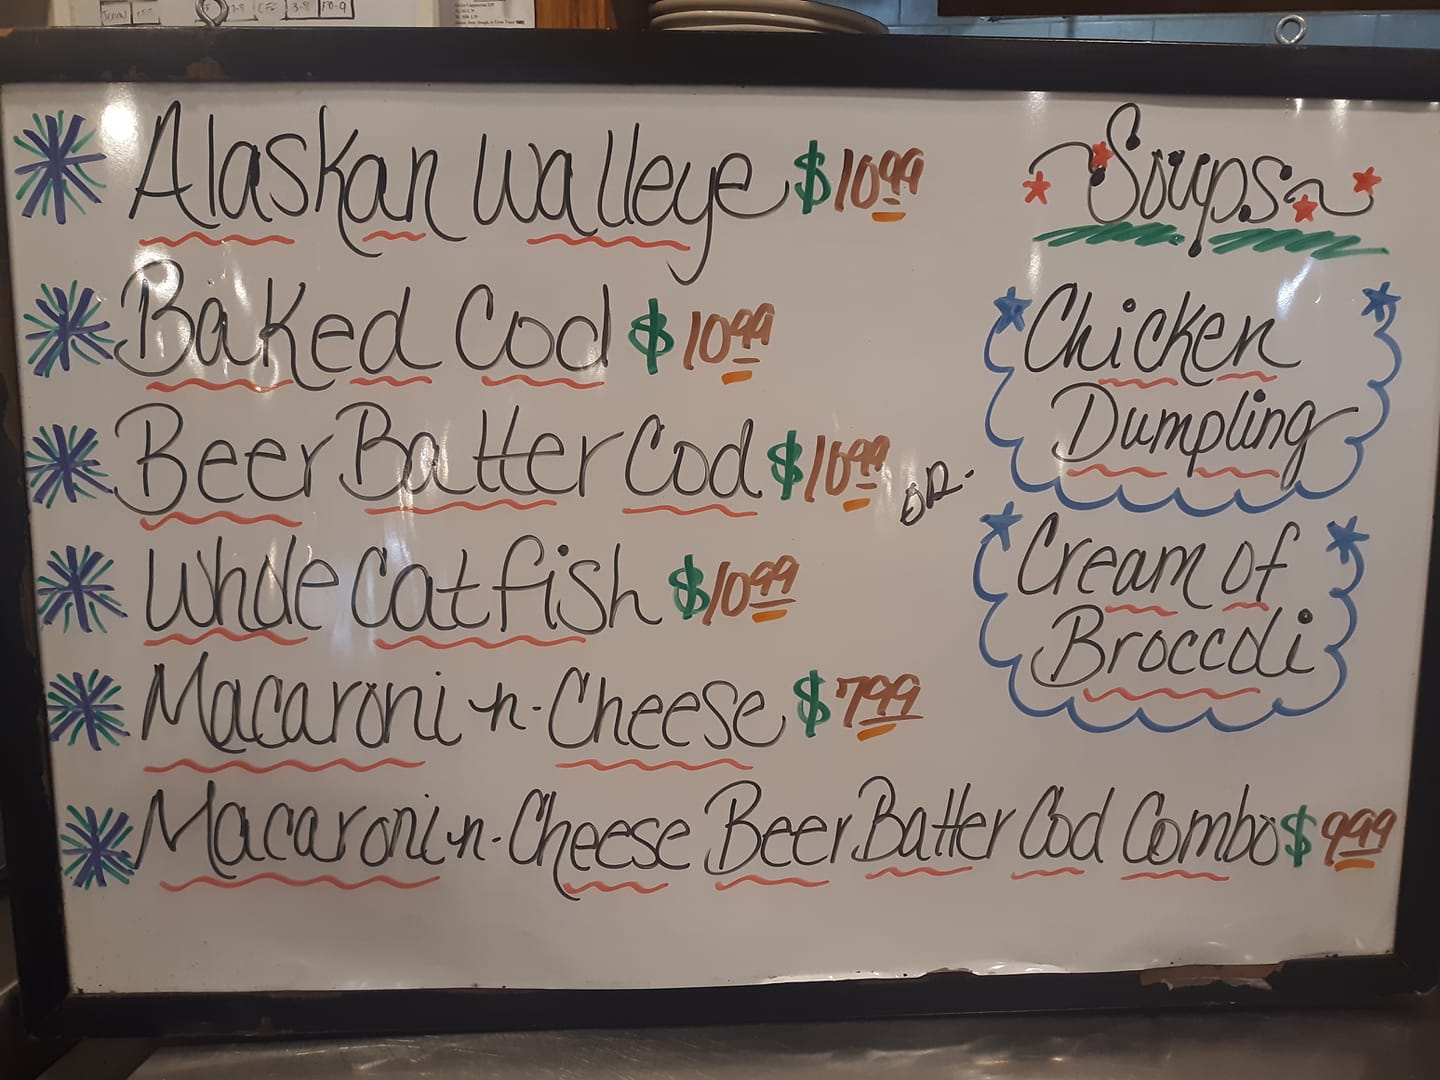 Alaskan Walleye $10.99
Baked Cod $10.99
Beer Batter Cod $10.99 OR.
Whole Catfish $10.99
Macaroni -n- Cheese $7.99
Macaroni -n- Cheese Beer Batter Cod Combo $9.99
Soups
Chicken
Dumpling
Cream of
Broccoli